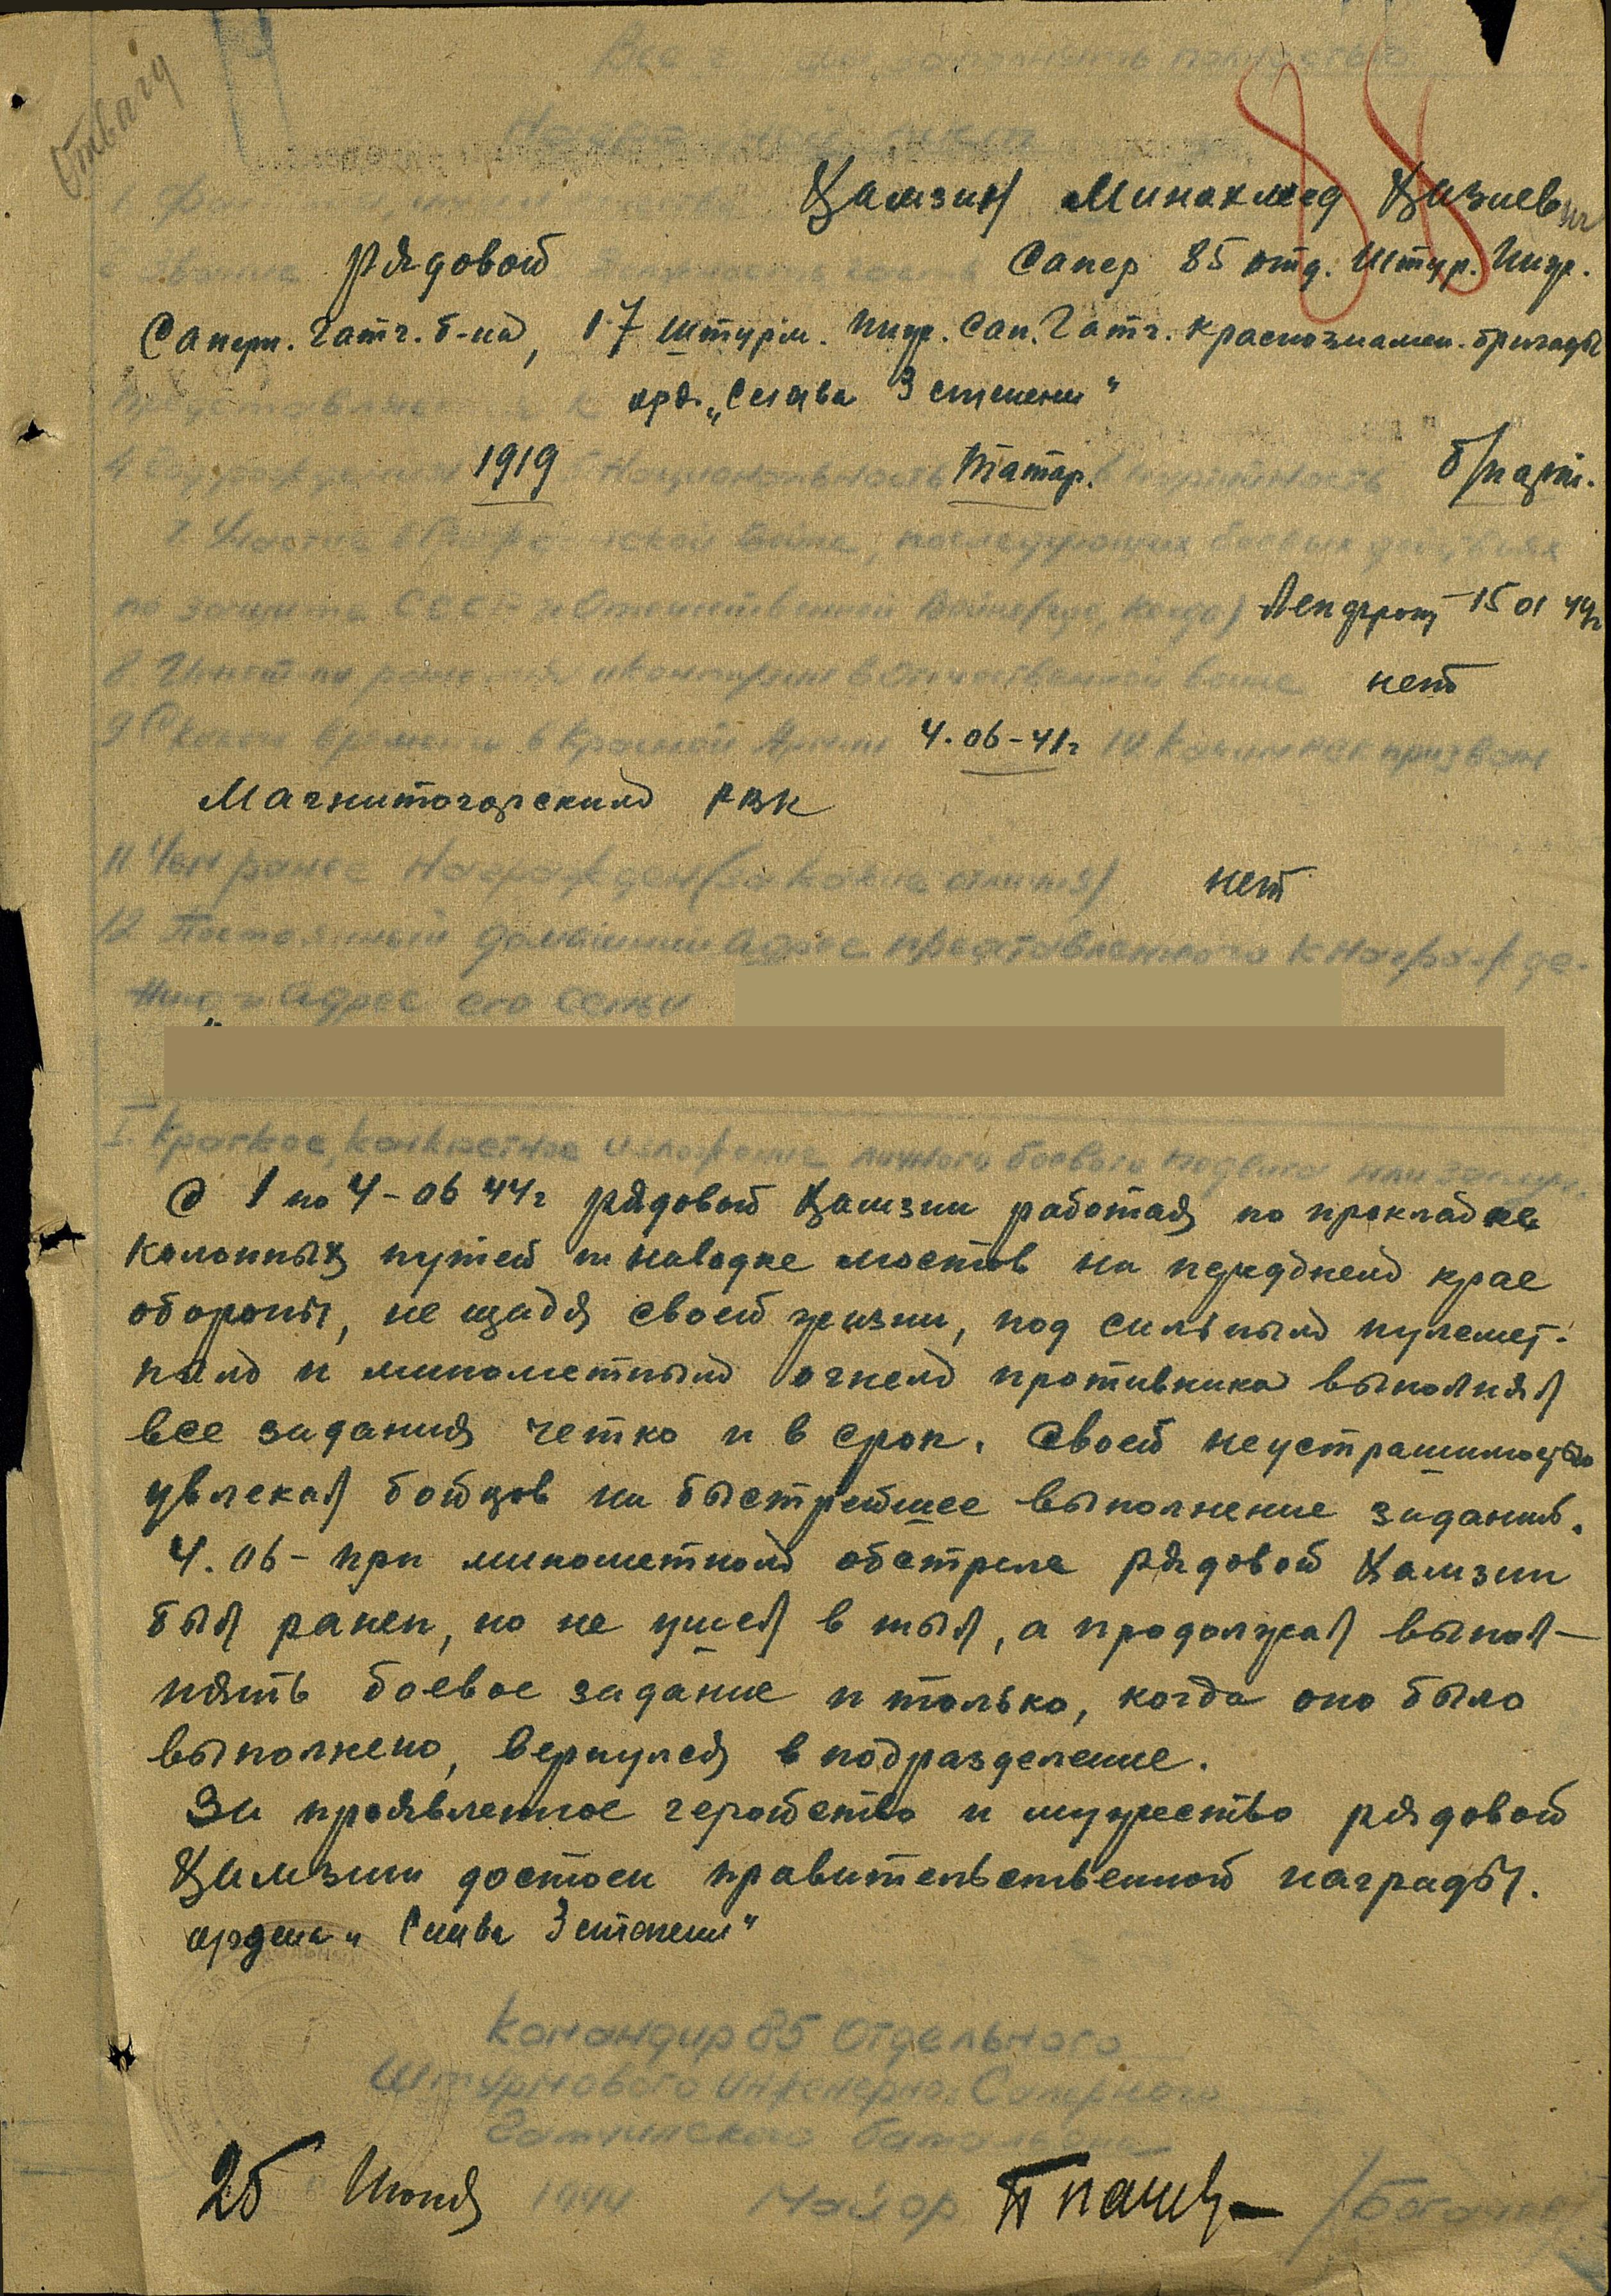 Отвагу
Все заполнять полностью
Наградной лист
88
1 Фамилия имя Хамзин Минахмед Хазиевич
2 Звание рядовой Сапер 85 отд. Штур. Инж.
Саперн. Гатч. б-на, 17 штурм. Инж. Сап. Гатч. Краснознамен. бригады
Представляется к орд. „Слава 3 степени"
4 Год рождения 1919 5 Национальность Татар. 6 Партийность б/парт.
7 Участие в Гражданской войне, последующих боевых действиях
по защите СССР и Отечественной войне (где, когда) Ленфронт 15 01 44г
8 Имеет ли ранения и контузии в Отечественной войне нет
9 С какого времени в Красной Армии 4.06-41г 10 Каким РВК призван
Магнитогорским РВК
11 Чем ранее награжден (за какие отличия) нет
12 Постоянный домашний адрес представленного к награжде-
нию и адрес его семьи
I. Краткое, конкретное изложение личного боевого подвига или заслуг.
С 1 по 4-06 44г рядовой Хамзин работая по прокладке
колонных путей и наводке мостов на переднем крае
обороны, не щадя своей жизни, под сильным пулемет.
ным и минометным огнем противника выполнял
все задания четко и в срок. Своей неустрашимостью
увлекал бойцов на быстрейшее выполнение задания.
4.06- при минометном обстреле рядовой Хамзин
был ранен, но не ушел в тыл, а продолжал выпол-
нять боевое задание и только, когда оно было
выполнено, вернулся в подразделение.
За проявленное геройство и мужество рядовой
Хамзин достоен правительственной награды.
ордена „Слава 3 степени"
Командир 85 Отдельного
Штурмового Инженерно-Саперного
Гатчинского батальона
26 Июня 1944 Майор /Богачев/